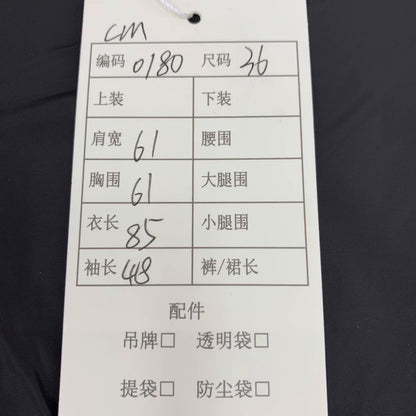 CM
编码 0180 尺码 36
上装 下装
肩宽 61 腰围
胸围 61 大腿围
衣长 85 小腿围
袖长 48 裤/裙长
配件
吊牌□ 透明袋□
提袋□ 防尘袋□